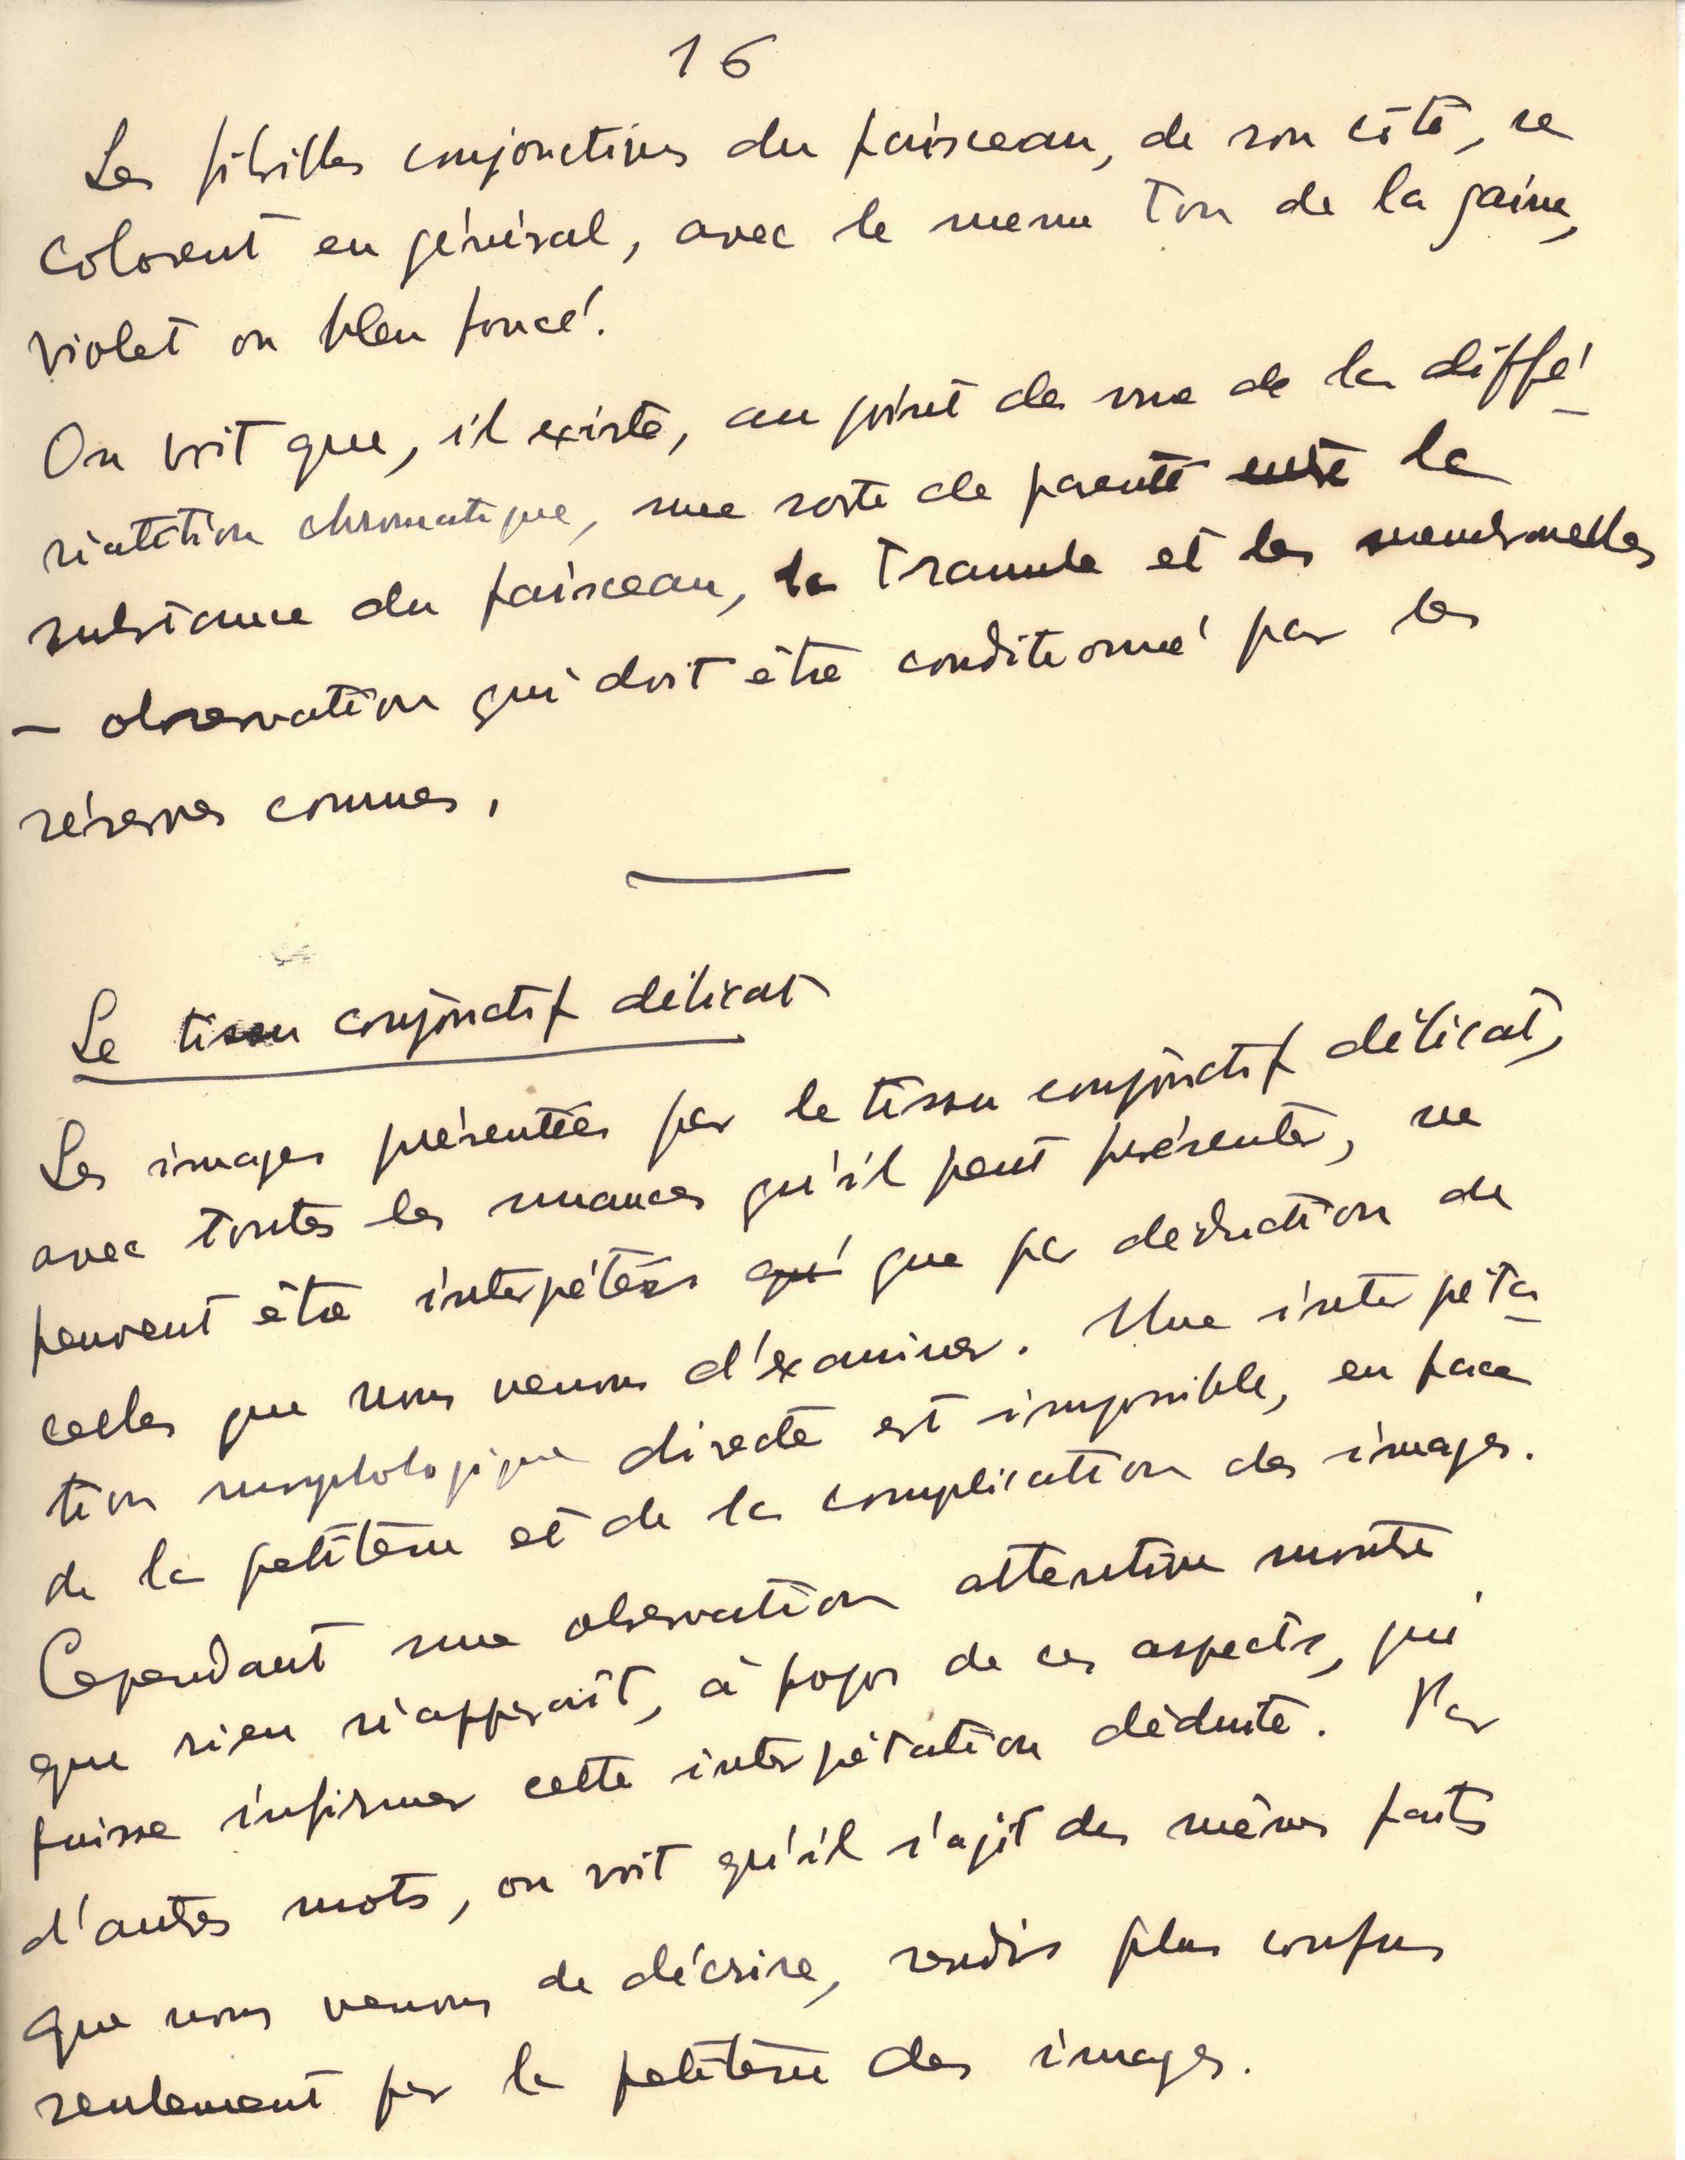 16
Les fibrilles conjonctives du faisceau, de son côté, se
colorent en général, avec le meme ton de la gaine,
violet ou bleu foncé.
On voit que, il existe, au point de vue de la diffé-
riatition chromatique, une sorte de parenté entre la
substance du faisceau, la tramule et les membranelles
— observation qui doit être conditionné par les
réserves connues.
Le tissu conjonctif délicat
Les images présentées par le tissu conjonctif délicat,
avec toutes les nuances qu'il peut présenter, ne
peuvent être interpétées qui que par déduction de
celles que nous venons d'examiner. Une interpéta-
tion morphologique directe est impossible, en face
de la petitesse et de la complication des images.
Cependant une observation attentive montre
que rien n'apparaît, à propos de ces aspects, qui
puisse infirmer cette interpétation déduite. Par
d'autres mots, on voit qu'il s'agit des mêmes faits
que nous venons de décrire, rendis plus confus
seulement par la petitesse des images.